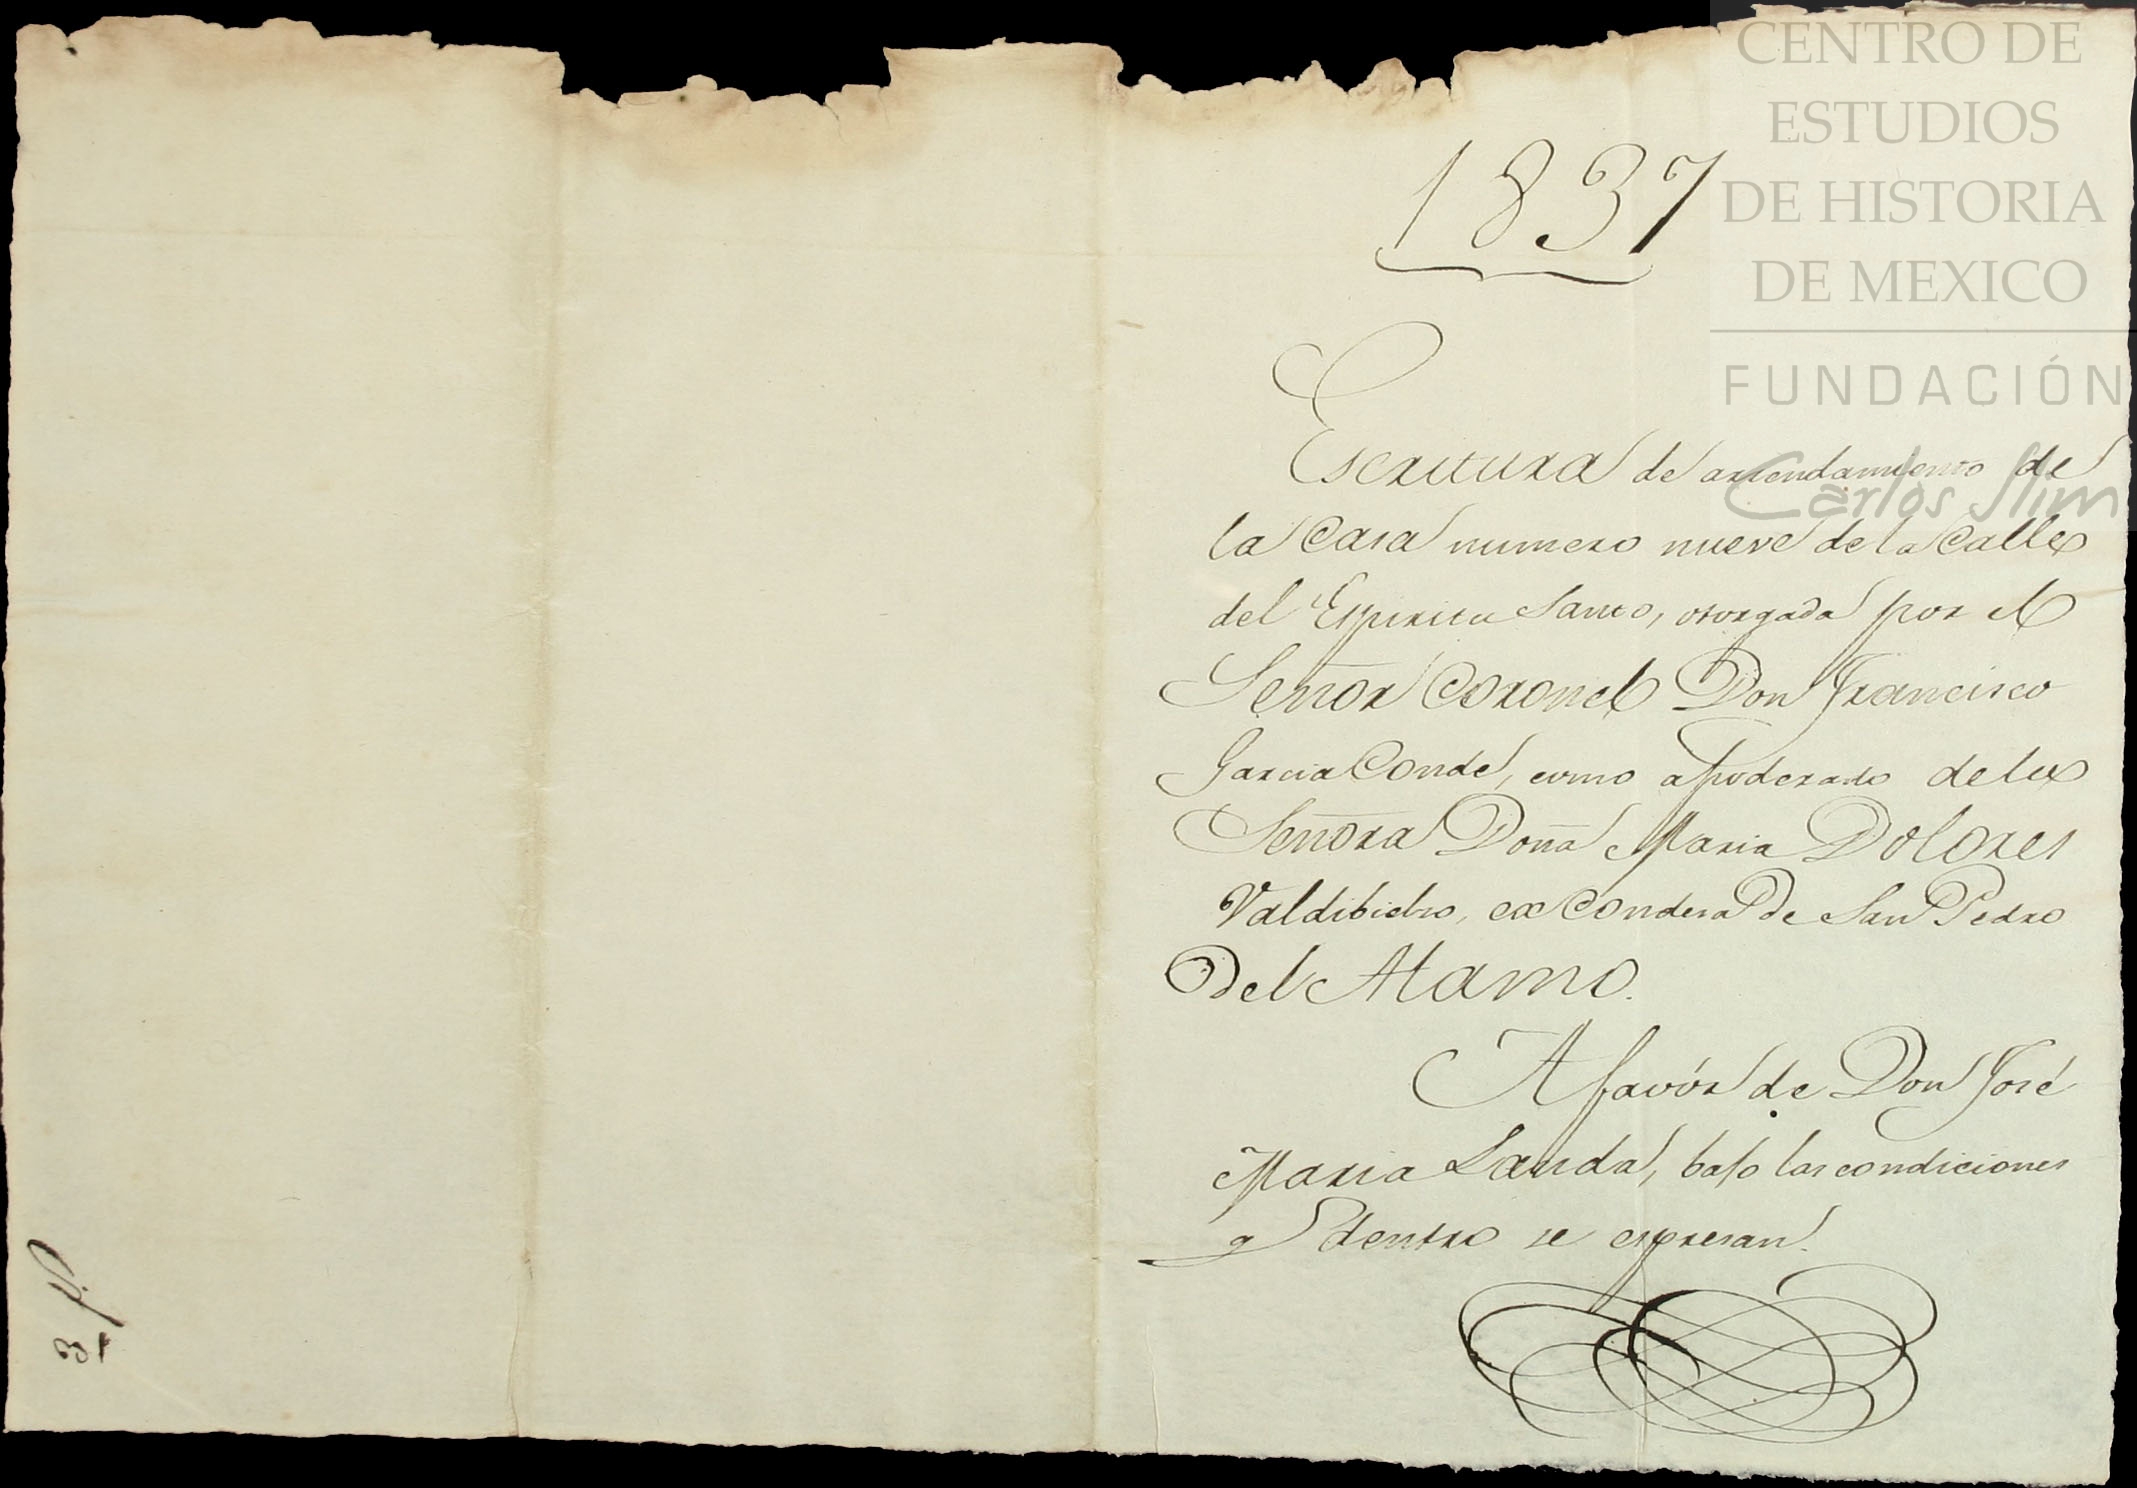 1837
Escritura de arrendamiento de
la Casa numero nueve de la Calle
del Espiritu Santo, otorgada por el
Señor Coronel Don Francisco
Garcia Conde, como apoderado de la
Señora Doña Maria Dolores
Valdibielso, ex Condesa De San Pedro
Del Alamo.
A favór de Don José
Maria Landa, bajo las condiciones
q dentro se espresan.
CENTRO DE
ESTUDIOS
DE HISTORIA
DE MEXICO
FUNDACIÓN
Carlos Slim